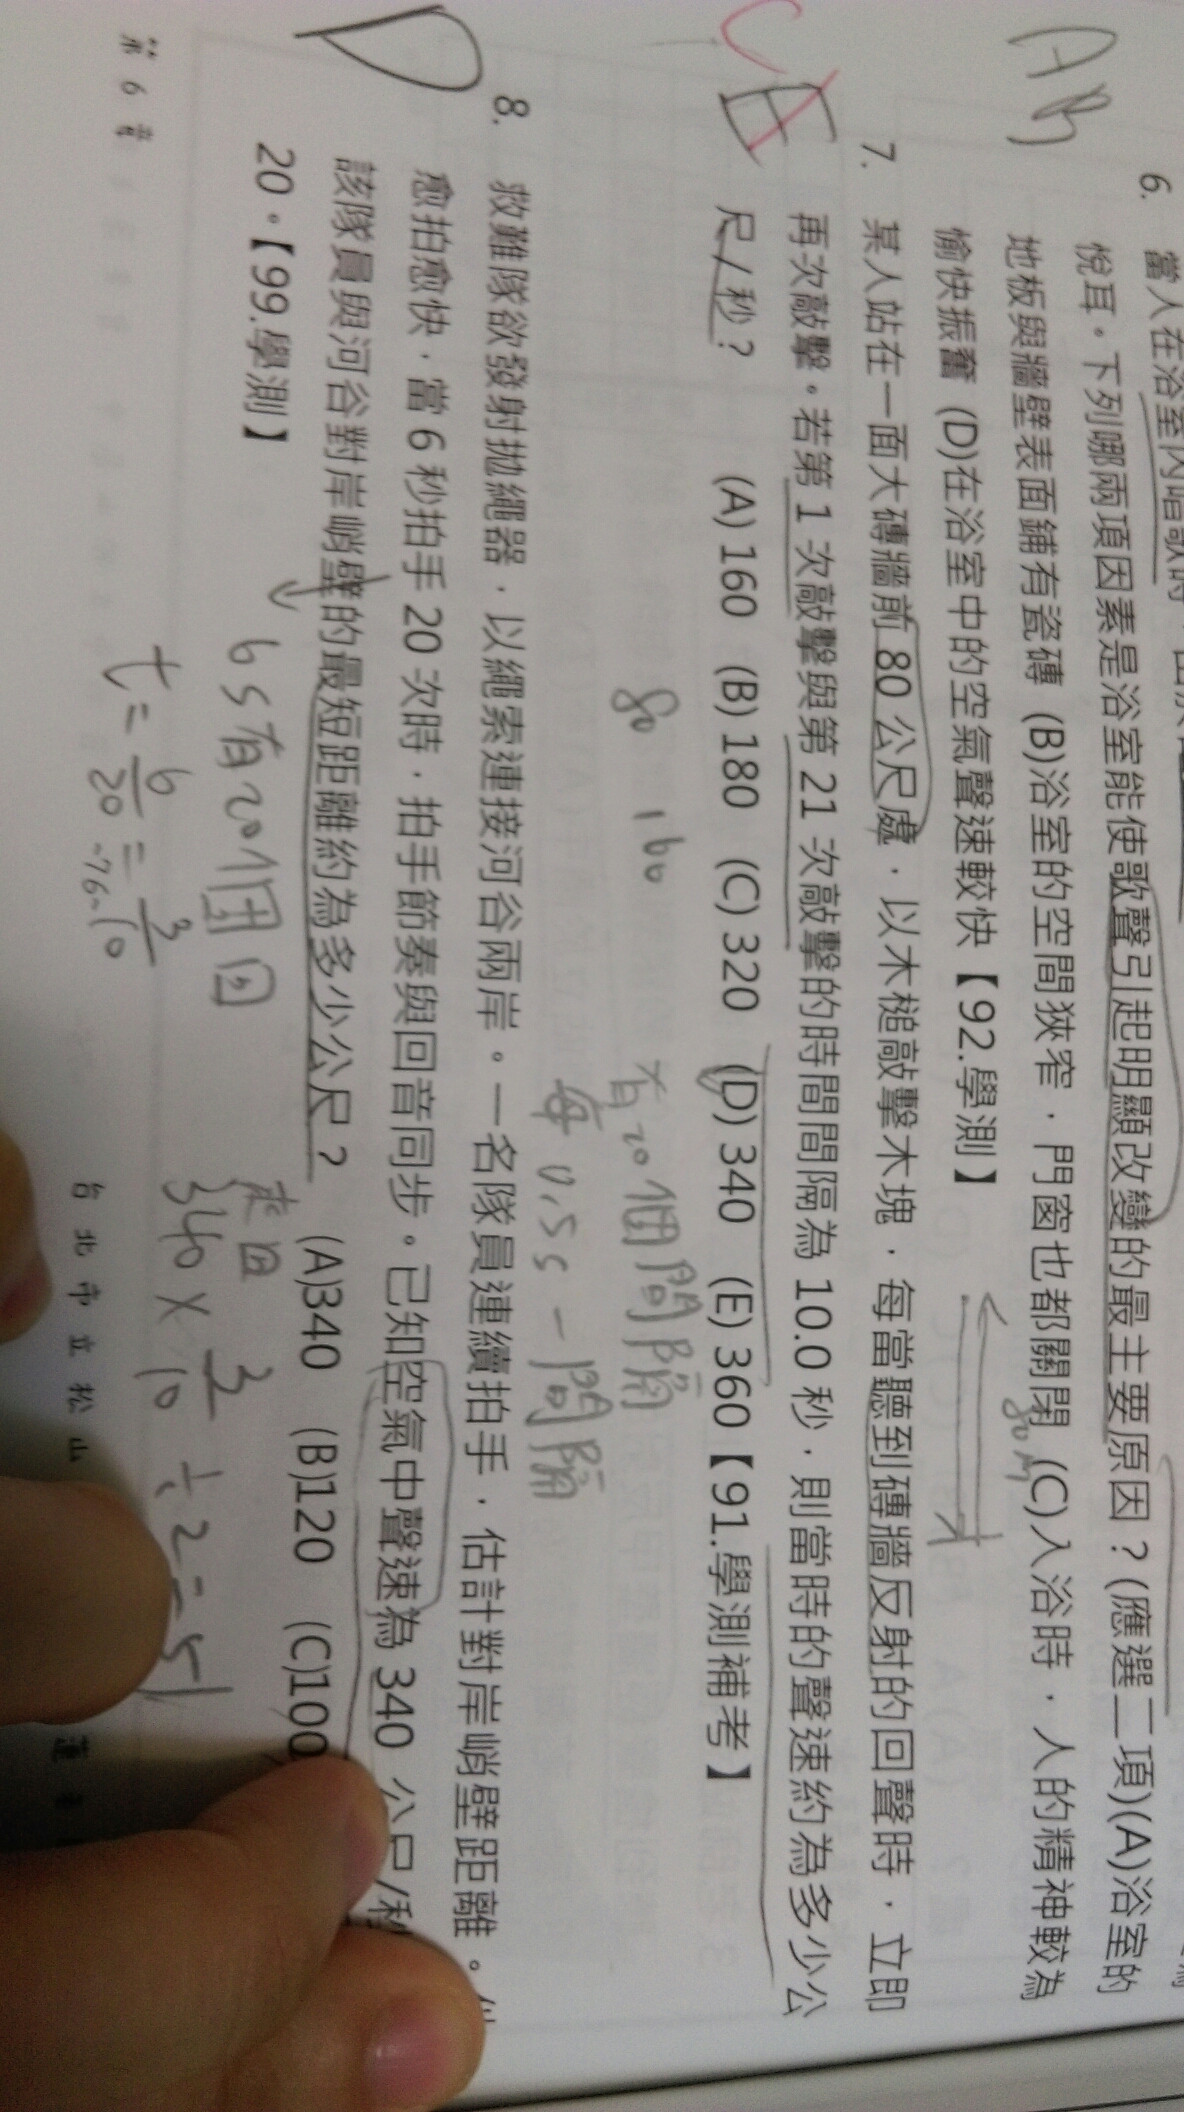 AB
6. 當人在浴室內唱歌時，
悅耳。下列哪兩項因素是浴室能使歌聲引起明顯改變的最主要原因？(應選二項)(A)浴室的
地板與牆壁表面鋪有瓷磚 (B)浴室的空間狹窄，門窗也都關閉 (C)入浴時，人的精神較為
愉快振奮 (D)在浴室中的空氣聲速較快【92.學測】
80m
C E
7. 某人站在一面大磚牆前 80 公尺處，以木槌敲擊木塊，每當聽到磚牆反射的回聲時，立即
再次敲擊。若第 1 次敲擊與第 21 次敲擊的時間間隔為 10.0 秒，則當時的聲速約為多少公
尺/秒？ (A) 160 (B) 180 (C) 320 (D) 340 (E) 360【91.學測補考】
80 160 有20個間隔
每0.5s一間隔
D
8. 救難隊欲發射拋繩器，以繩索連接河谷兩岸。一名隊員連續拍手，估計對岸峭壁距離。
愈拍愈快，當 6 秒拍手 20 次時，拍手節奏與回音同步。已知空氣中聲速為 340 公尺/秒
該隊員與河谷對岸峭壁的最短距離約為多少公尺？ (A)340 (B)120 (C)100
20。【99.學測】
6s有20個回
t = 6/20 = 3/10
來回
340 × 3/10 ÷ 2 = 51
第 6 章
-76-
台 北 市 立 松 山